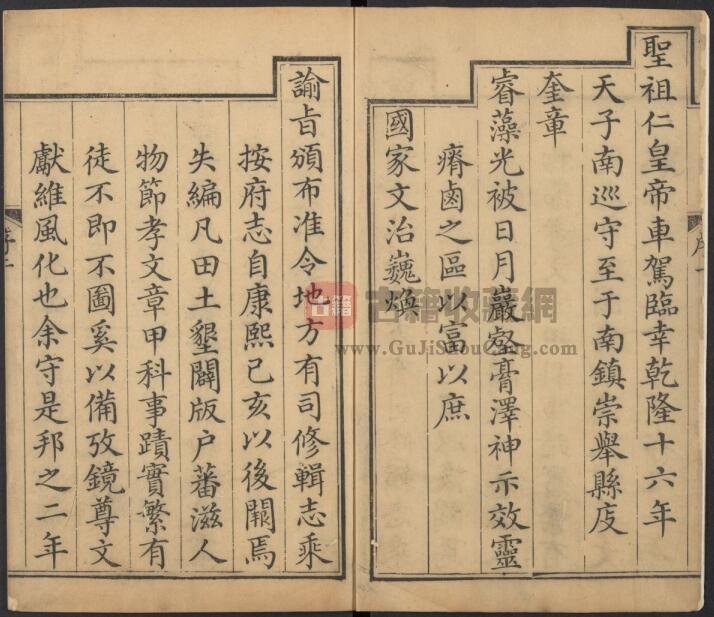 聖祖仁皇帝車駕臨幸乾隆十六年
天子南巡守至于南鎮崇舉縣庋
奎章
睿藻光被日月巖壑膏澤神示效靈
瘠鹵之區以富以庶
國家文治巍煥
諭旨頒布准令地方有司修輯志乘
按府志自康熙己亥以後闕焉
失編凡田土墾闢版户蕃滋人
物節孝文章甲科事蹟實繁有
徒不即不圖奚以備攷鏡尊文
獻維風化也余守是邦之二年
古籍
古籍收藏網
www.GuJiShouCang.com